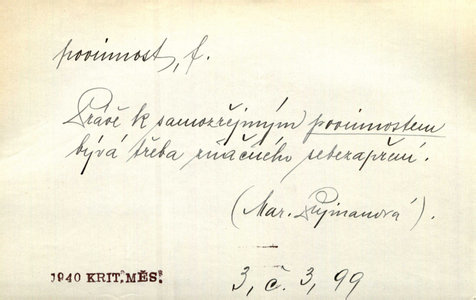 povinnost, f.
Právě k samozřejmým povinnostem
bývá třeba značného sebezapření.
(Mar. Pujmanová).
1940 KRIT. MĚS. 3, č. 3, 99